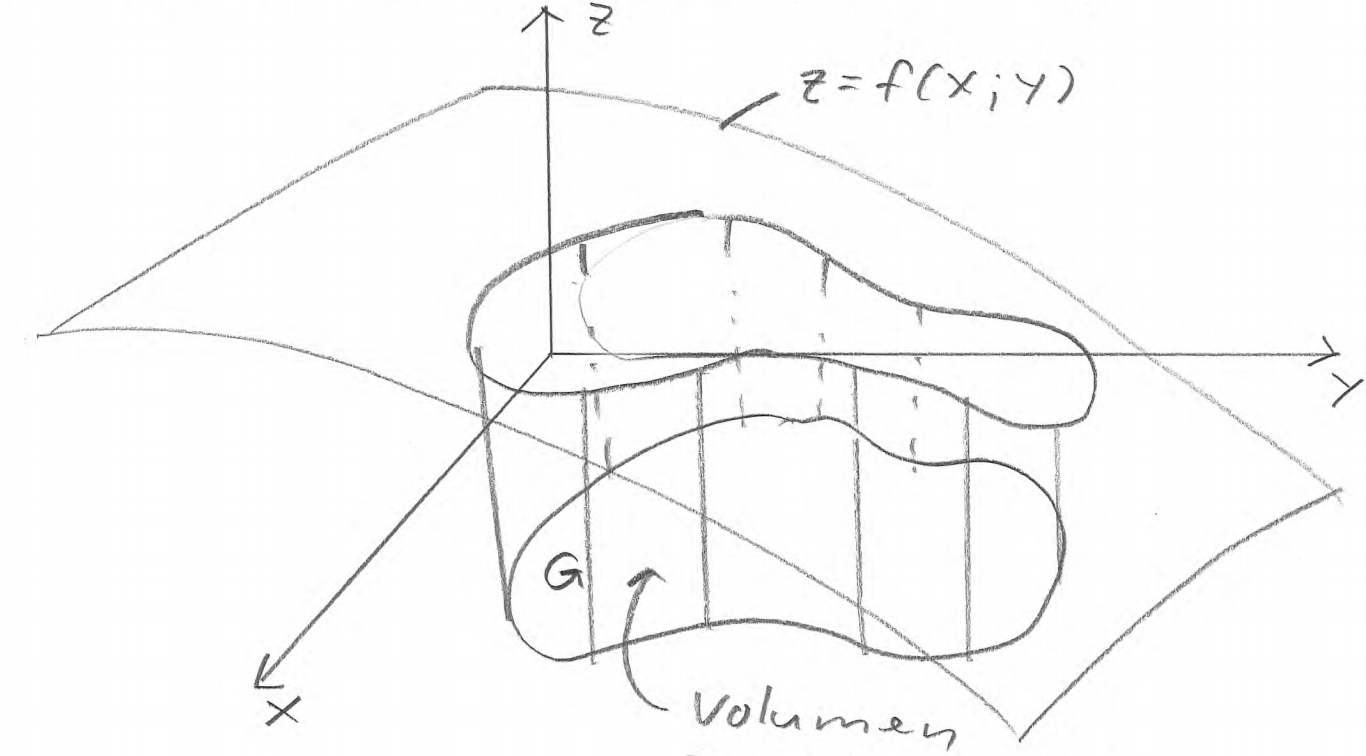 z
z=f(x;y)
y
G
x
Volumen